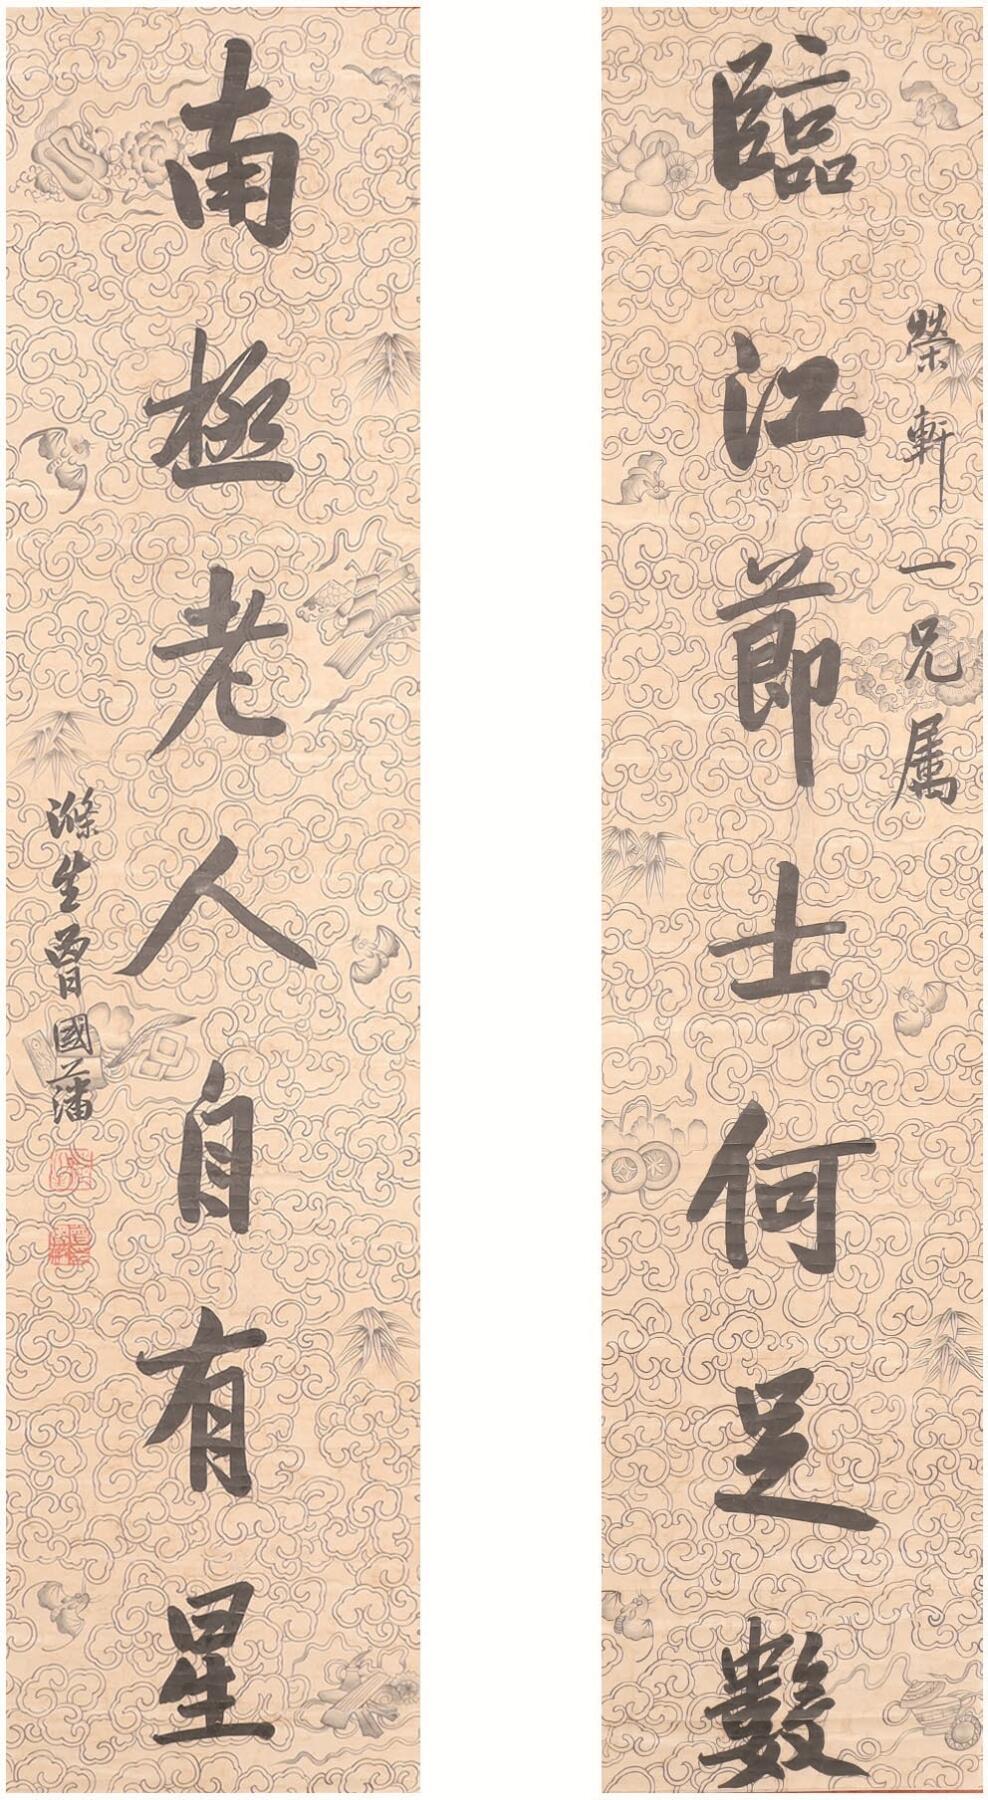 榮軒一兄属
臨江節士何足數
南極老人自有星
滌生曾國藩